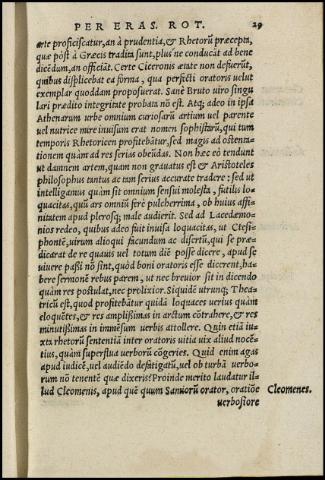 PER ERAS. ROT. 29
arte proficiscatur, an à prudentia, & Rhetorũ præcepta,
quæ pòst à Græcis tradita sunt, plus ne conducãt ad bene
dicẽdum, an officiãt. Certe Ciceronis ætate non defuerũt,
quibus displicebat ea forma, qua perfecti oratoris uelut
exemplar quoddam proposuerat. Sanè Bruto uiro singu
lari prædito integritate probata nõ est. Atq; adeo in ipsa
Athenarum urbe omnium curiosarũ artium uel parente
uel nutrice mire inuisum erat nomen sophistarũ, qui tum
temporis Rhetoricen profitebãtur, sed magis ad ostenta=
tionem quàm ad res serias obeũdas. Non hæc eò tendunt
ut damnem artem, quam non grauatus est & Aristoteles
philosophus tantus ac tam serius accurate tradere: sed ut
intelligamus quàm sit omnium sensui molesta, futilis lo=
quacitas, quũ ars omniũ ferè pulcherrima, ob huius affi=
nitatem apud plerosq; male audierit. Sed ad Lacedæmo=
nios redeo, quibus adeo fuit inuisa loquacitas, ut Ctesi=
phontẽ, uirum alioqui facundum ac disertũ, qui se præ=
dicarat de re quauis uel totum diẽ posse dicere, apud se
uiuere paßi nõ sint, quòd boni oratoris esse dicerent, ha=
bere sermonẽ rebus parem, ut nec breuior sit in dicendo
quàm res postulat, nec prolixior. Siquidẽ utrunq; Thea=
tricũ est, quod profitebãtur quidã loquaces uerius quàm
eloquẽtes, & res amplißimas in arctum cõtrahere, & res
minutißimas in immẽsum uerbis attollere. Quin etiã iu=
xta rhetorũ sententiã inter oratoris uitia uix aliud nocẽ=
tius, quàm superflua uerborũ cõgeries. Quid enim agas
apud iudicẽ, uel audiẽdo defatigatũ, uel ob turbã uerbo=
rum nõ tenentẽ quæ dixeris? Proinde merito laudatur il=
lud Cleomenis, apud quẽ quum Samiorũ orator, oratiõe Cleomenes.
uerbosiore